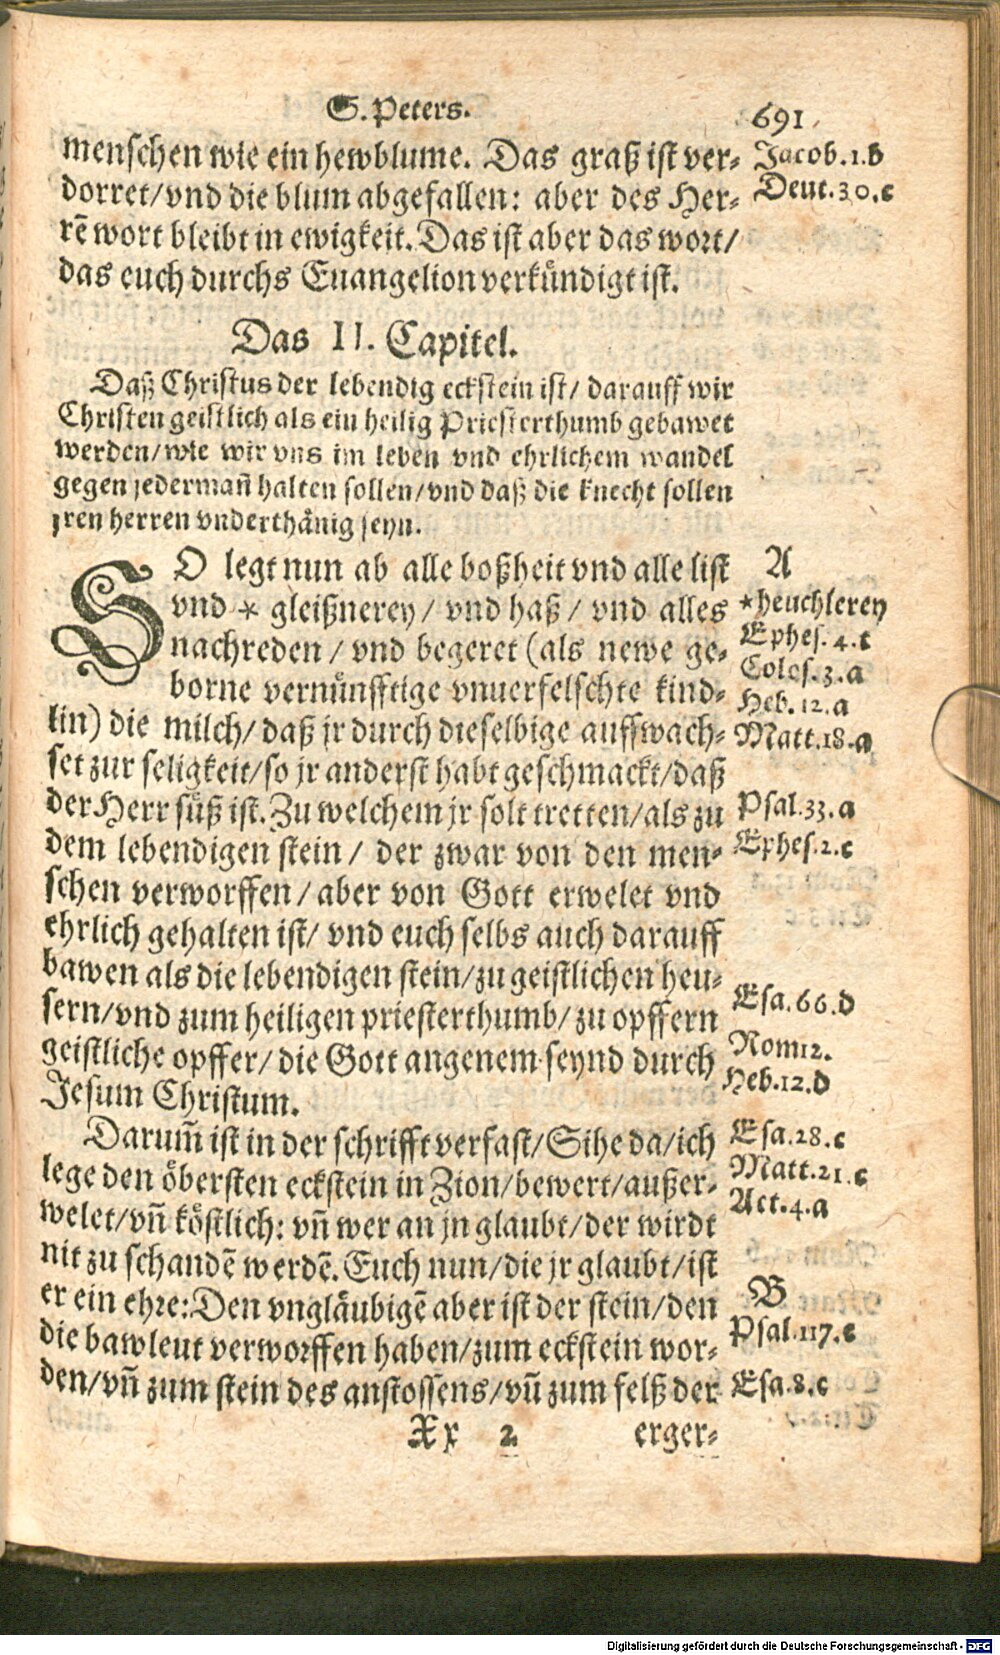 S. Peters.
691
menschen wie ein hewblume. Das graß ist ver-
dorret/vnd die blum abgefallen: aber des Her-
rē wort bleibt in ewigkeit. Das ist aber das wort/
das euch durchs Euangelion verkündigt ist.
Jacob.1.b
Deut.30.c
Das II. Capitel.
Daß Christus der lebendig eckstein ist/ darauff wir
Christen geistlich als ein heilig Priesterthumb gebawet
werden/wie wir vns im leben vnd ehrlichem wandel
gegen jedermañ halten sollen/vnd daß die knecht sollen
jren herren vnderthänig seyn.
SO legt nun ab alle boßheit vnd alle list
vnd * gleißnerey/ vnd haß/ vnd alles
nachreden/ vnd begeret (als newe ge-
borne vernünfftige vnuerfelschte kind-
lin) die milch/ daß jr durch dieselbige auffwach-
set zur seligkeit/so jr anderst habt geschmackt/daß
der Herr süß ist. Zu welchem jr solt tretten/als zu
dem lebendigen stein/ der zwar von den men-
schen verworffen/ aber von Gott erwelet vnd
ehrlich gehalten ist/ vnd euch selbs auch darauff
bawen als die lebendigen stein/zu geistlichen heu-
sern/vnd zum heiligen priesterthumb/ zu opffern
geistliche opffer/ die Gott angenem seynd durch
Jesum Christum.
A
*heuchlerey
Ephes.4.c
Colos.3.a
Heb.12.a
Matt.18.a
Psal.33.a
Ephes.2.c
Esa.66.d
Rom12.
Heb.12.d
Darum̃ ist in der schrifft verfast/Sihe da/ich
lege den öbersten eckstein in Zion/bewert/außer-
welet/vñ köstlich: vñ wer an jn glaubt/der wirdt
nit zu schandē werdē. Euch nun/die jr glaubt/ist
er ein ehre: Den vngläubigē aber ist der stein/den
die bawleut verworffen haben/zum eckstein wor-
den/vñ zum stein des anstossens/vñ zum felß der
Esa.28.c
Matt.21.c
Act.4.a
B
Psal.117.c
Esa.8.c
Xx 2
erger-
Digitalisierung gefördert durch die Deutsche Forschungsgemeinschaft - DFG